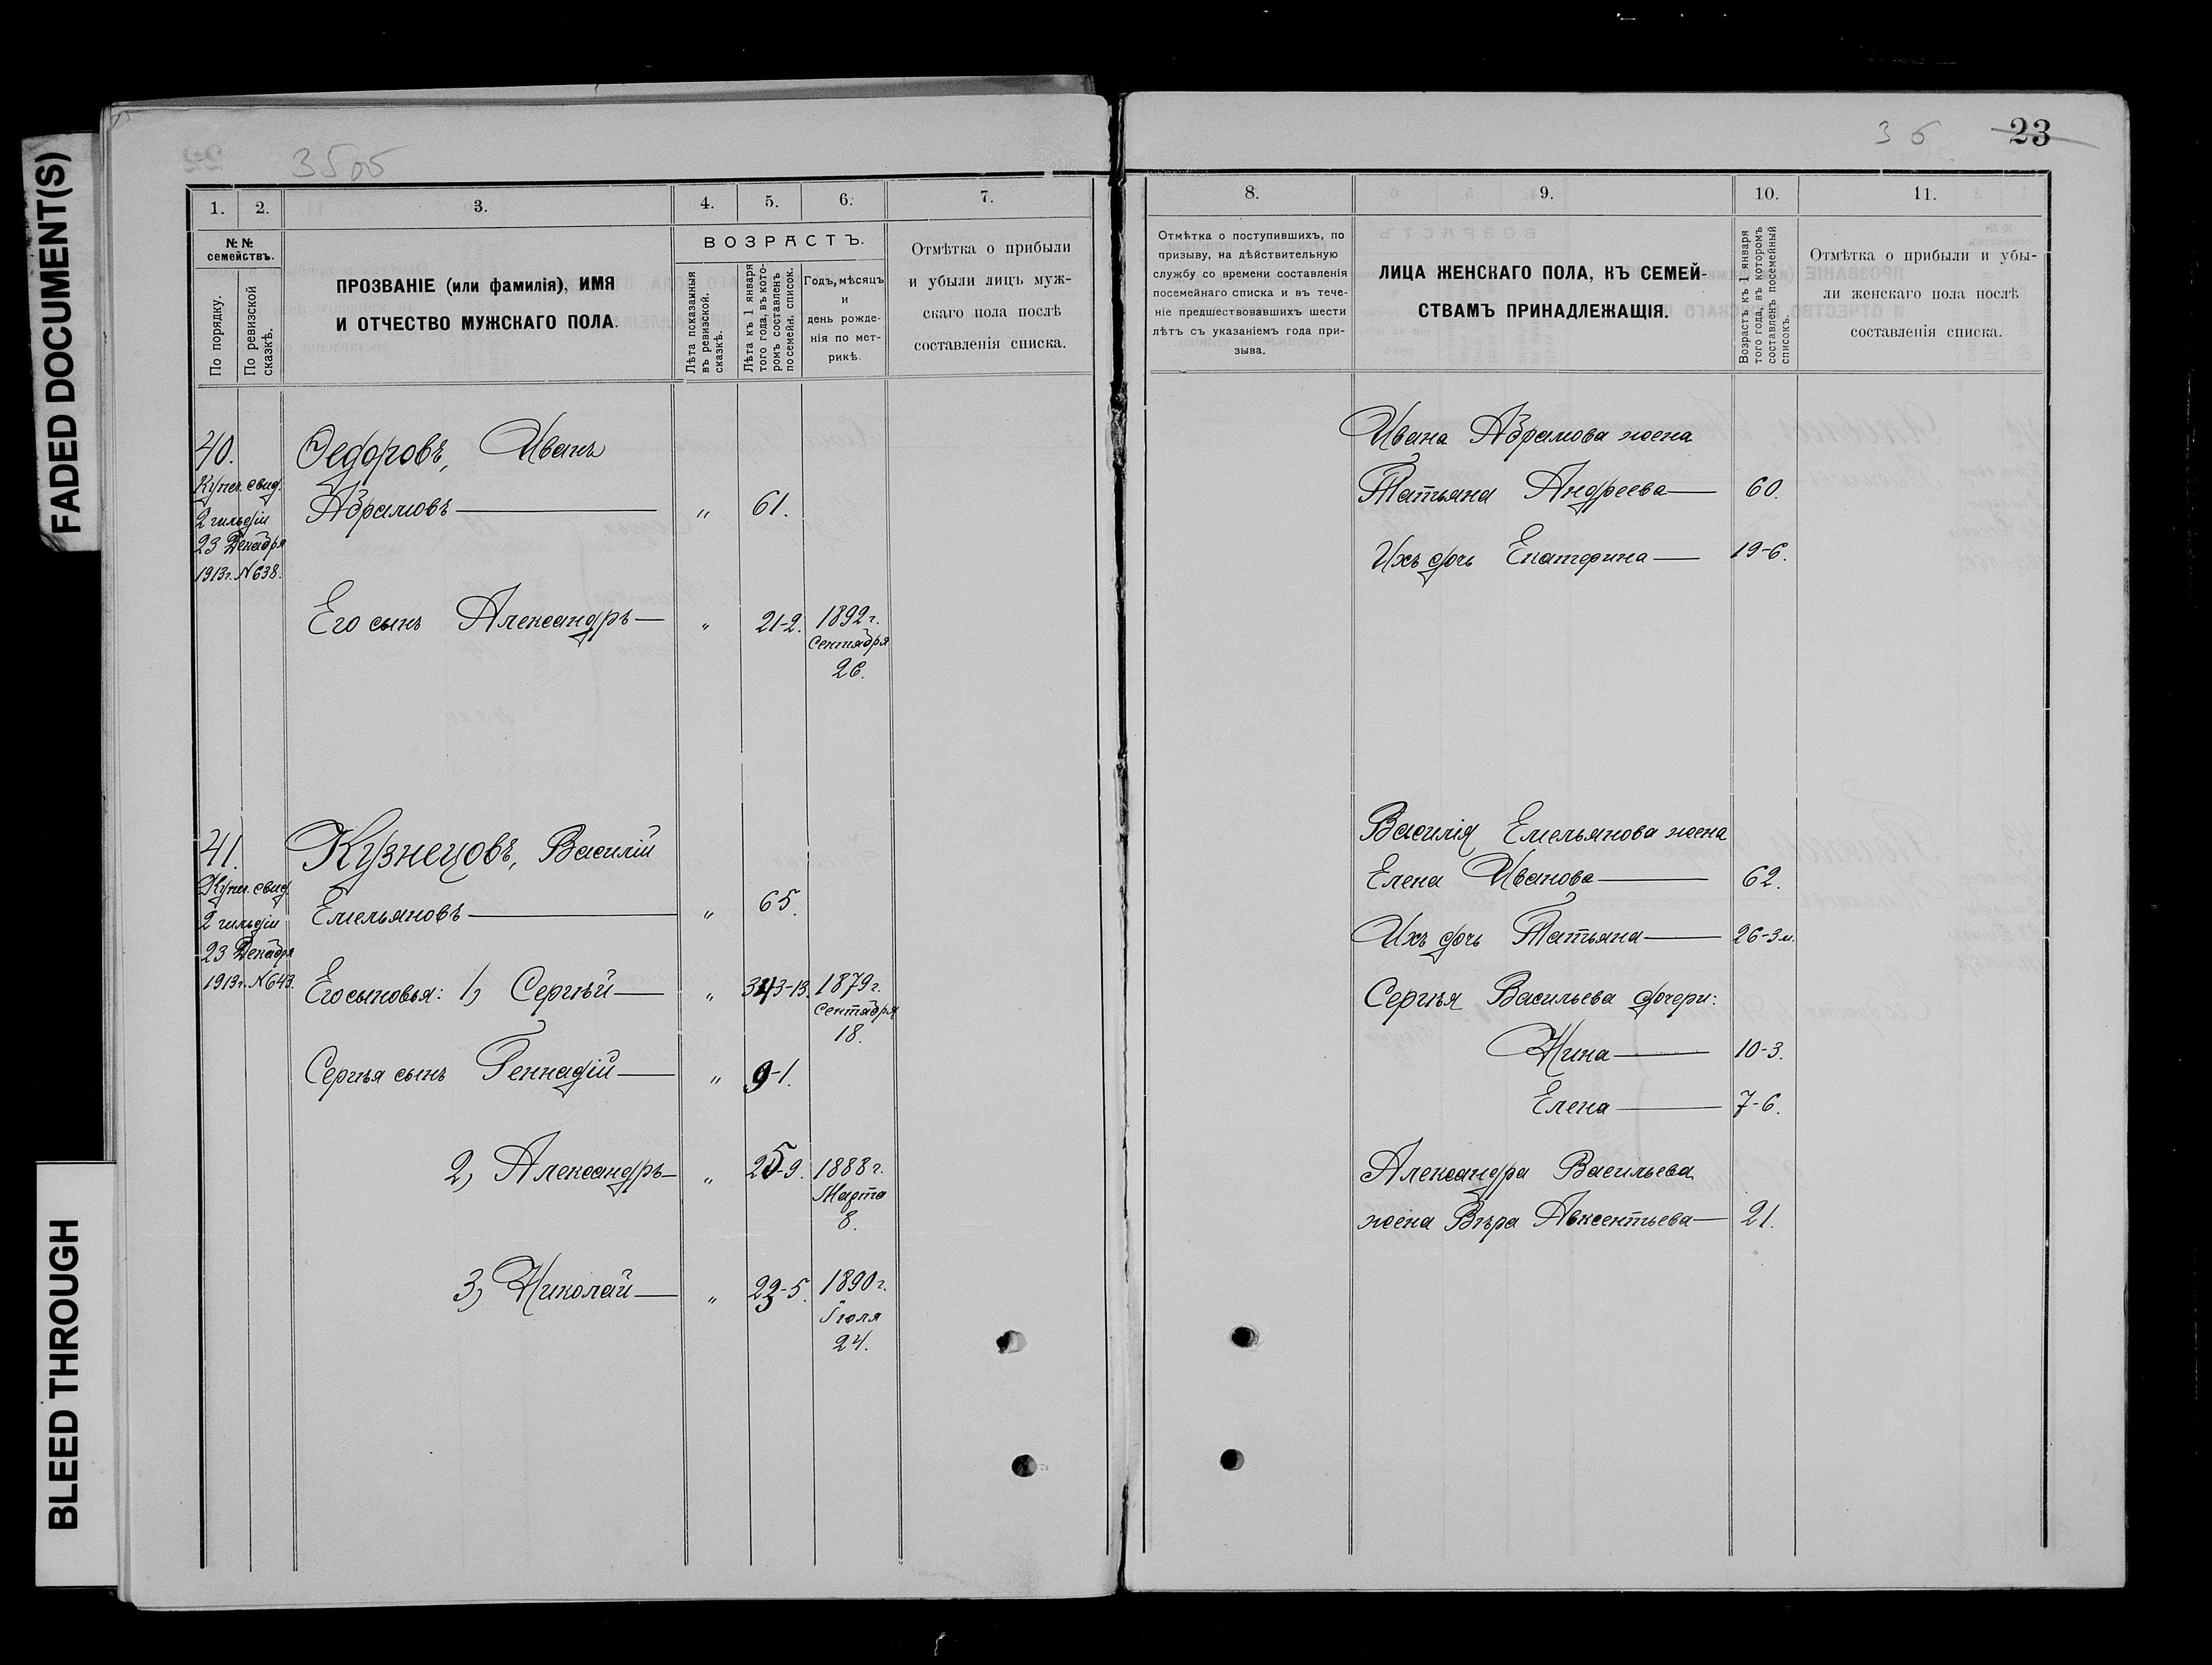 FADED DOCUMENT(S)
BLEED THROUGH
35об
1. 2. 3. 4. 5. 6. 7.
№ № семействъ.
По порядку.
По ревизской сказкѣ.
ПРОЗВАНІЕ (или фамилія), ИМЯ
И ОТЧЕСТВО МУЖСКАГО ПОЛА.
ВОЗРАСТЪ.
Лѣта показанныя
въ ревизской.
сказкѣ.
Лѣта къ 1 января
того года, въ кото-
ромъ составленъ
посемейн. список.
Годъ, мѣсяцъ
и
день рожде-
нія по мет-
рикѣ.
Отмѣтка о прибыли
и убыли лицъ муж-
скаго пола послѣ
составленія списка.
40.
Купеч. свид.
2 гильдіи
23 Декабря
1913г. № 638.
Федоровъ, Иванъ
Абрамовъ — „ 61.
Его сынъ Александръ — „ 21-2. 1892 г.
Сентября
26.
41.
Купеч. свид.
2 гильдіи
23 Декабря
1913г. № 643.
Кузнецовъ, Василій
Емельяновъ — „ 65.
Его сыновья: 1) Сергѣй — „ 1879 г.
Сентября
18.
Сергѣя сынъ Геннадій — „ 9-1.
2) Александръ — „ 25-9. 1888 г.
Марта
8.
3) Николай — „ 23-5. 1890 г.
Іюля
24.
36 23
8. 9. 10. 11.
Отмѣтка о поступившихъ, по
призыву, на дѣйствительную
службу со времени составленія
посемейнаго списка и въ тече-
ніе предшествовавшихъ шести
лѣтъ съ указаніемъ года при-
зыва.
ЛИЦА ЖЕНСКАГО ПОЛА, КЪ СЕМЕЙ-
СТВАМЪ ПРИНАДЛЕЖАЩІЯ.
Возрастъ къ 1 января
того года, въ которомъ
составленъ посемейный
списокъ.
Отмѣтка о прибыли и убы-
ли женскаго пола послѣ
составленія списка.
Ивана Абрамова жена
Татьяна Андреева — 60.
Ихъ дочь Екатерина — 19-6.
Василія Емельянова жена
Елена Иванова — 62.
Ихъ дочь Татьяна — 26-3 м.
Сергѣя Васильева дочери:
Нина — 10-3.
Елена — 7-6.
Александра Васильева
жена Вѣра Авксентьева — 21.